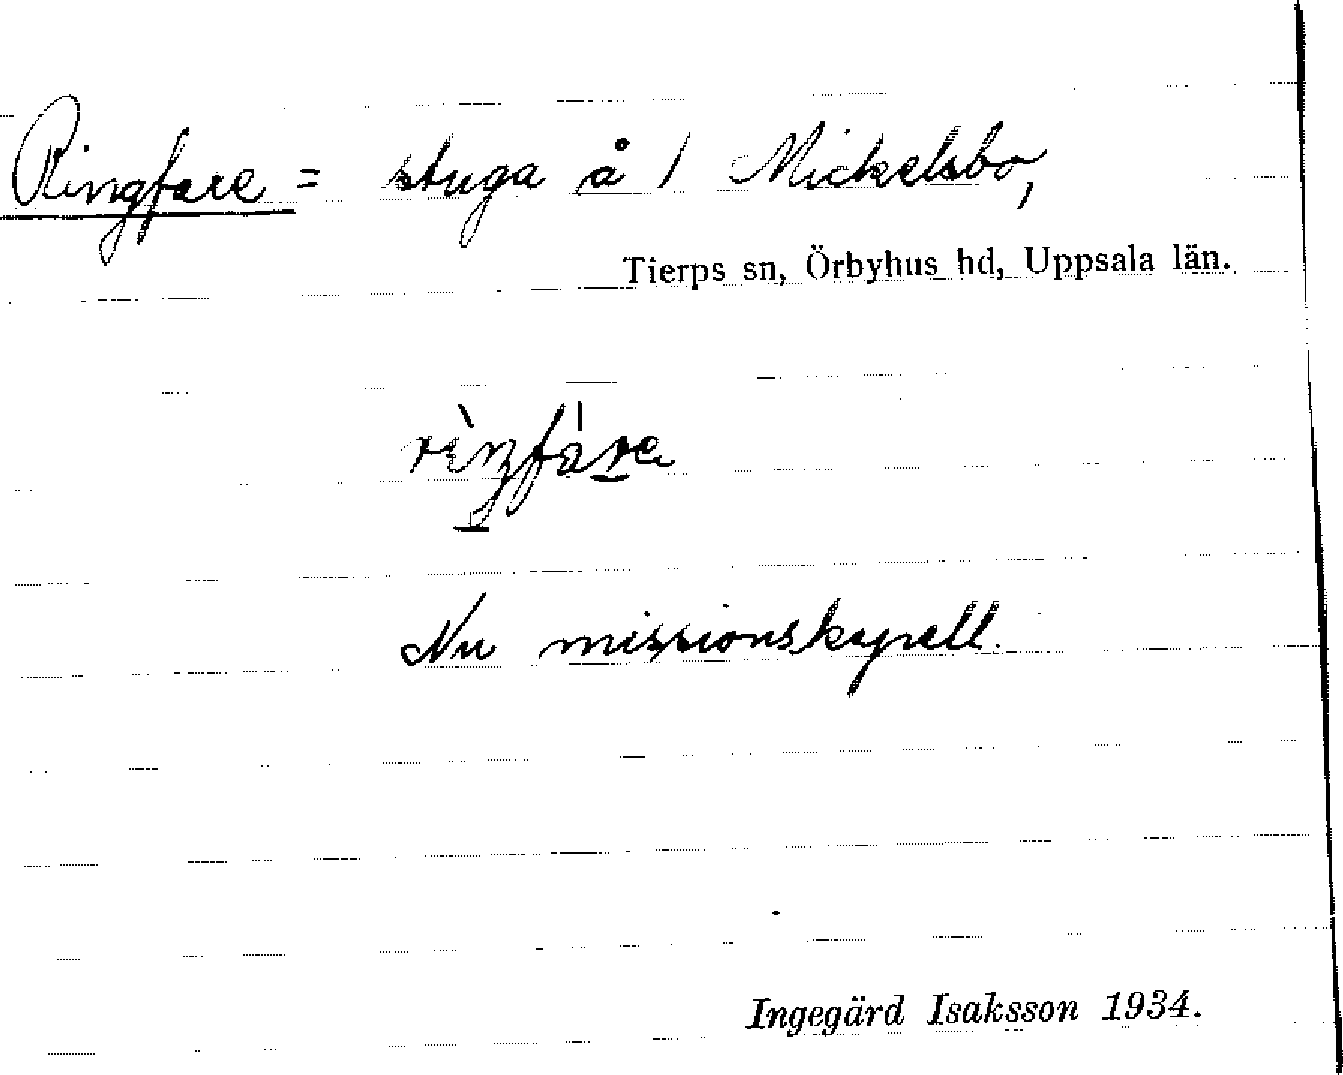 Ringfare = stuga å 1 Mickelsbo,
Tierps sn, Örbyhus hd, Uppsala län.
rìŋfáre
Nu missionskapell.
Ingegärd Isaksson 1934.